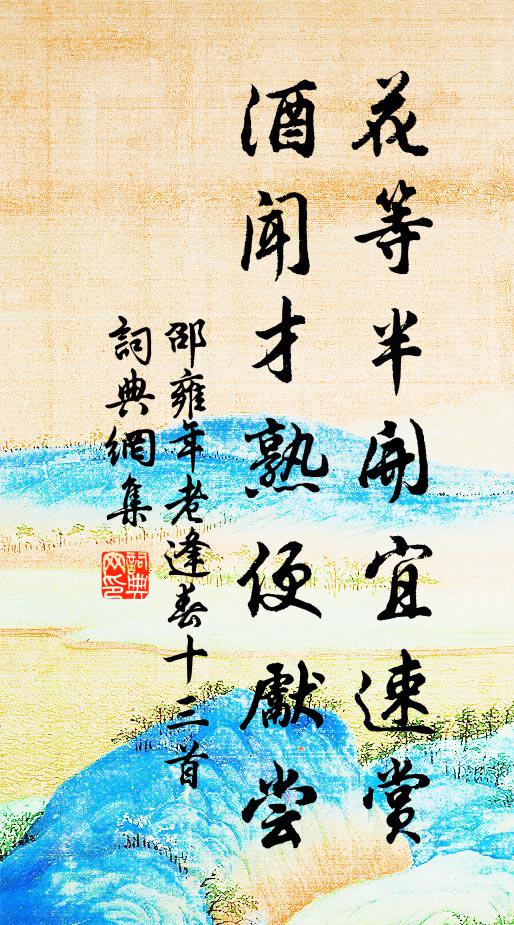 花等半開宜速賞
酒聞才熟便獻尝
邵雍年老逢春十三首
詞典網集
詞典
网印